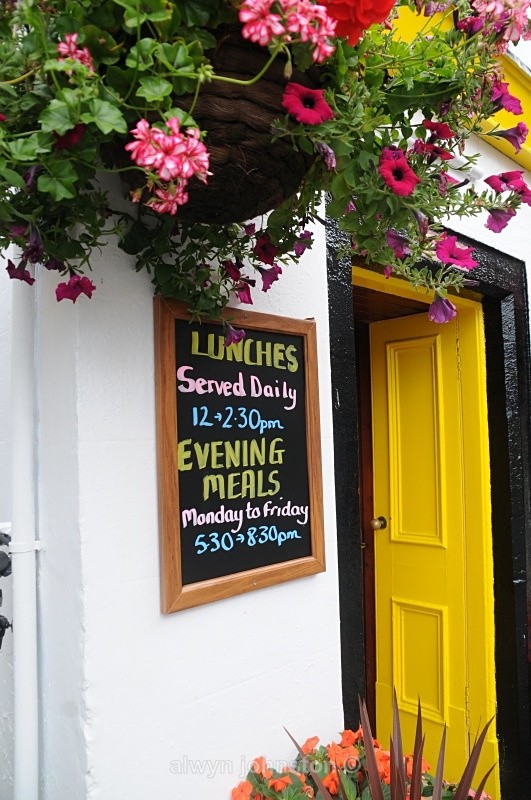 LUNCHES
Served Daily
12→2·30pm
EVENING
MEALS
Monday to Friday
5·30→8·30pm
alwyn johnston ©